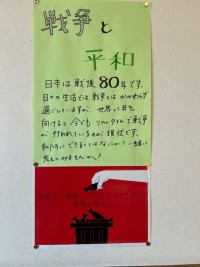 戦争と
平和
日本は戦後80年です。
日々の生活では、戦争とはかかわらず
過ごしていますが、世界に目を
向けると今でもリアルタイムで戦争
が行われているのが現状です。
私たちにできることはなにか！一緒に
考えてみませんか？